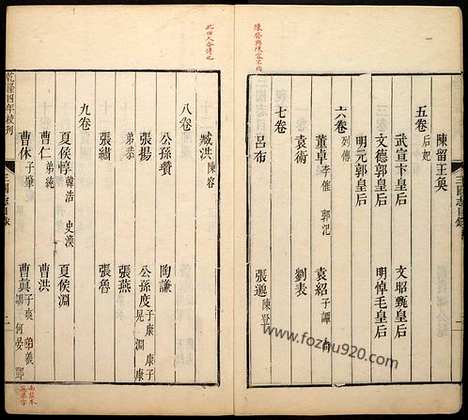 陳留王奐
五卷
后妃
武宣卞皇后 文昭甄皇后
文德郭皇后 明悼毛皇后
明元郭皇后
六卷
列傳
董卓 李傕 郭汜 袁紹 子譚 尚
袁術 劉表
七卷
呂布 張邈 陳登
臧洪 陳容
八卷
公孫瓚 陶謙
張揚 公孫度 子康 康子 晃 淵
弟恭 張燕
張繡 張魯
九卷
夏侯惇 韓浩 史渙 夏侯淵
曹仁 弟純 曹洪
曹休 子肇 曹真 子爽 弟羲 訓 何晏 鄧
乾隆四年校刊
三國志目錄
www.fozhu920.com